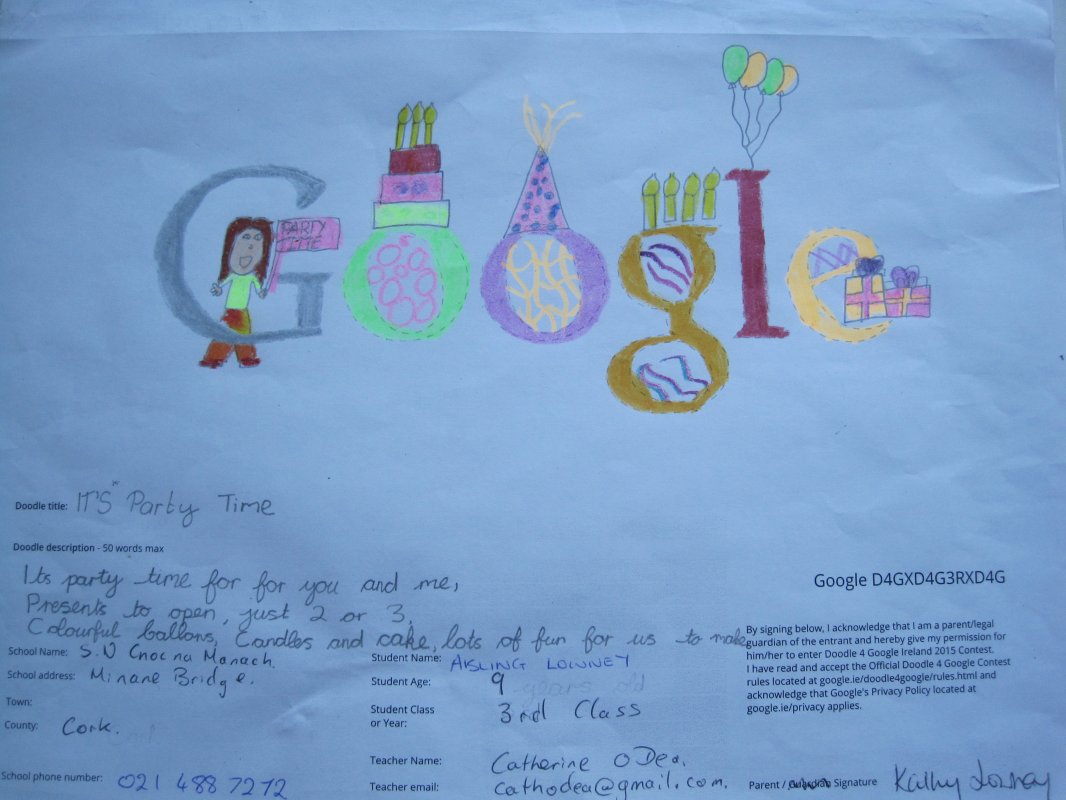 Google
PARTY
TIME
Doodle title: IT'S Party Time
Doodle description - 50 words max
Its party time for for you and me,
Presents to open, just 2 or 3,
Colourful ballons, Candles and cake, lots of fun for us to make
Google D4GXD4G3RXD4G
By signing below, I acknowledge that I am a parent/legal
guardian of the entrant and hereby give my permission for
him/her to enter Doodle 4 Google Ireland 2015 Contest.
I have read and accept the Official Doodle 4 Google Contest
rules located at google.ie/doodle4google/rules.html and
acknowledge that Google's Privacy Policy located at
google.ie/privacy applies.
School Name: S.N Cnoc na Manach.
School address: Minane Bridge.
Town:
County: Cork.
School phone number: 021 488 7272
Student Name: AISLING LOWNEY
Student Age: 9 years old
Student Class
or Year: 3rd Class
Teacher Name: Catherine O Dea.
Teacher email: cathodea@gmail.com.
Parent / Guardian Signature Kathy Lowney